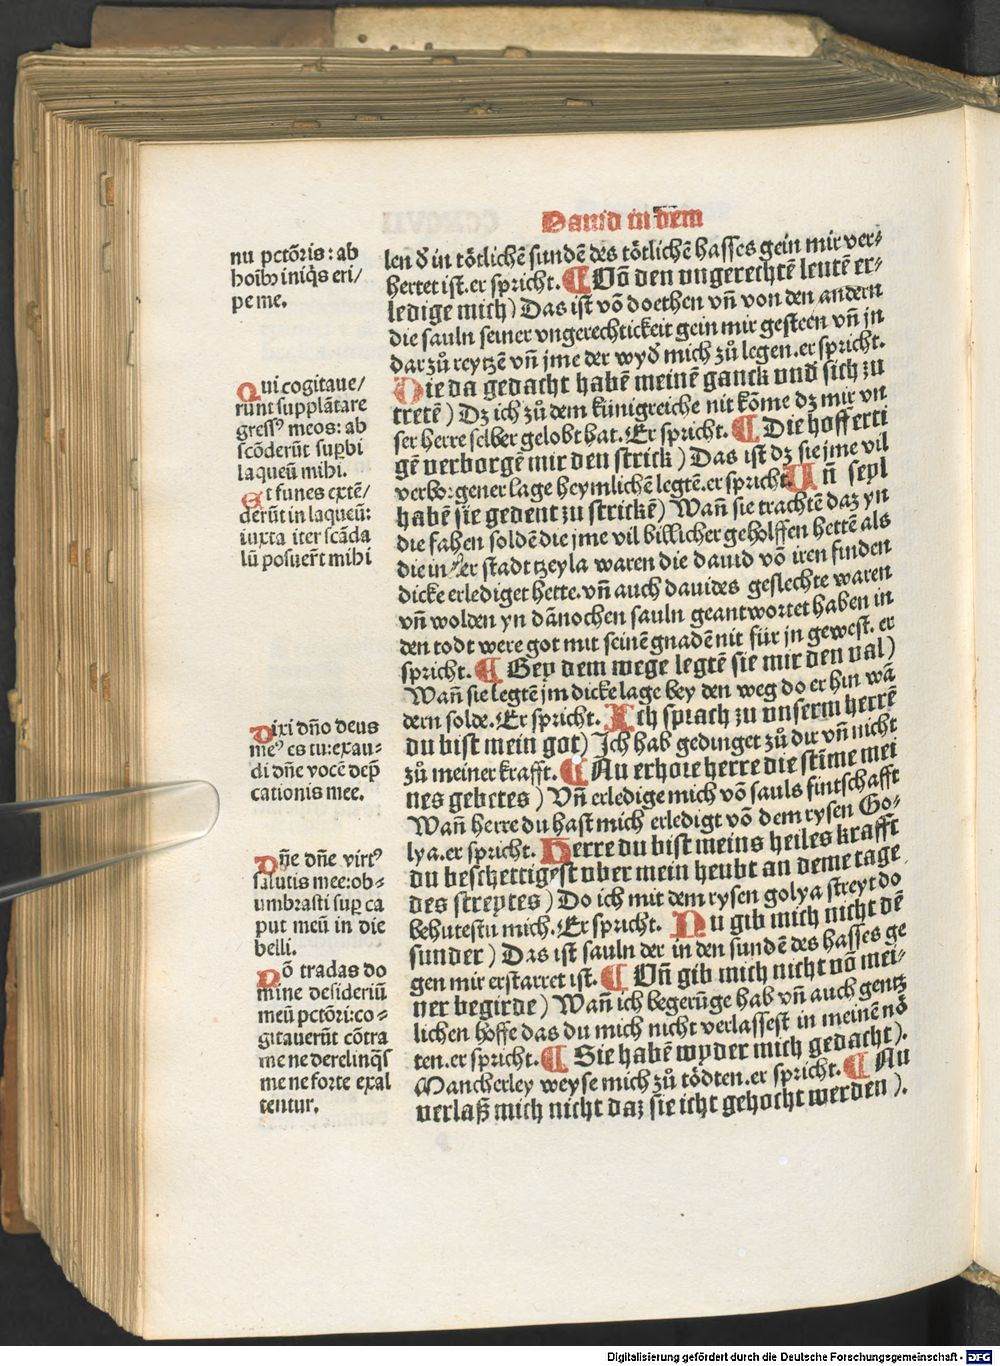 Dauid in dem
nu pctōris: ab
hoib₉ iniq̄s eri/
pe me.
Qui cogitaue/
runt supplātare
gressꝰ meos: ab
scōderūt suꝑbi
laqueū mihi.
Et funes extē/
derūt in laqueū:
iuxta iter scāda
lū posuer̄t mihi
Dixi dn̄o deus
meꝰ es tu: exau-
di dn̄e vocē dep̄
cationis mee.
Dn̄e dn̄e virtꝰ
salutis mee: ob-
umbrasti suꝑ ca
put meū in die
belli.
Nō tradas do
mine desideriū
meū pctōri: co-
gitauerūt cōtra
me ne derelinq̄s
me ne forte exal
tentur.
len d̄ in tötlichē sundē des tötlichē hasses gein mir ver-
hertet ist. er spricht. ¶ Uō den vngerechtē leutē er-
ledige mich) Das ist vō doethen vn̄ von den andern
die sauln seiner vngerechtickeit gein mir gesteen vn̄ jn
dar zů reytzē vn̄ jme der wyd̄ mich zů legen. er spricht.
Die da gedacht habē meinē ganck vnd sich zu
tretē) Dz ich zů dem künigreiche nit kōme dz mir vn
ser herre selber gelobt hat. Er spricht. ¶ Die hofferti
gē verborgē mir den strick) Das ist dz sie jme vil
verborgener lage heymlichē legtē. er spricht. Un̄ seyl
habē sie gedent zu strickē) Wan̄ sie trachtē daz yn
die fahen soldē die jme vil billicher geholffen hettē als
die in der stadt tzeyla waren die dauid vō iren finden
dicke erlediget hette. vn̄ auch dauides geslechte waren
vn̄ wolden yn dānochen sauln geantwortet haben in
den todt were got mit seinē gnadē nit für jn gewest. er
spricht. ¶ Bey dem wege legtē sie mir den val)
Wan̄ sie legtē jm dicke lage bey den weg do er hin wā
dern solde. Er spricht. Ich sprach zu vnserm herrē
du bist mein got) Ich hab gedinget zů dir vn̄ nicht
zů meiner krafft. ¶ Nu erhore herre die stīme mei
nes gebetes) Vn̄ erledige mich vō sauls fintschafft
Wan̄ herre du hast mich erledigt vō dem rysen Go-
lya. er spricht. Herre du bist meins heiles krafft
du beschettigest vber mein heubt an deme tage
des streytes) Do ich mit dem rysen golya streyt do
behutestu mich. Er spricht. Nu gib mich nicht dē
sunder) Das ist sauln der in den sundē des hasses ge
gen mir erstarret ist. ¶ Vn̄ gib mich nicht vō mei-
ner begirde) Wan̄ ich begerūge hab vn̄ auch gentz
lichen hoffe das du mich nicht verlassest in meinē nö
ten. er spricht. ¶ Sie habē wyder mich gedacht).
Mancherley weyse mich zů tödten. er spricht. ¶ Nu
verlaß mich nicht daz sie icht gehocht werden).
Digitalisierung gefördert durch die Deutsche Forschungsgemeinschaft - DFG